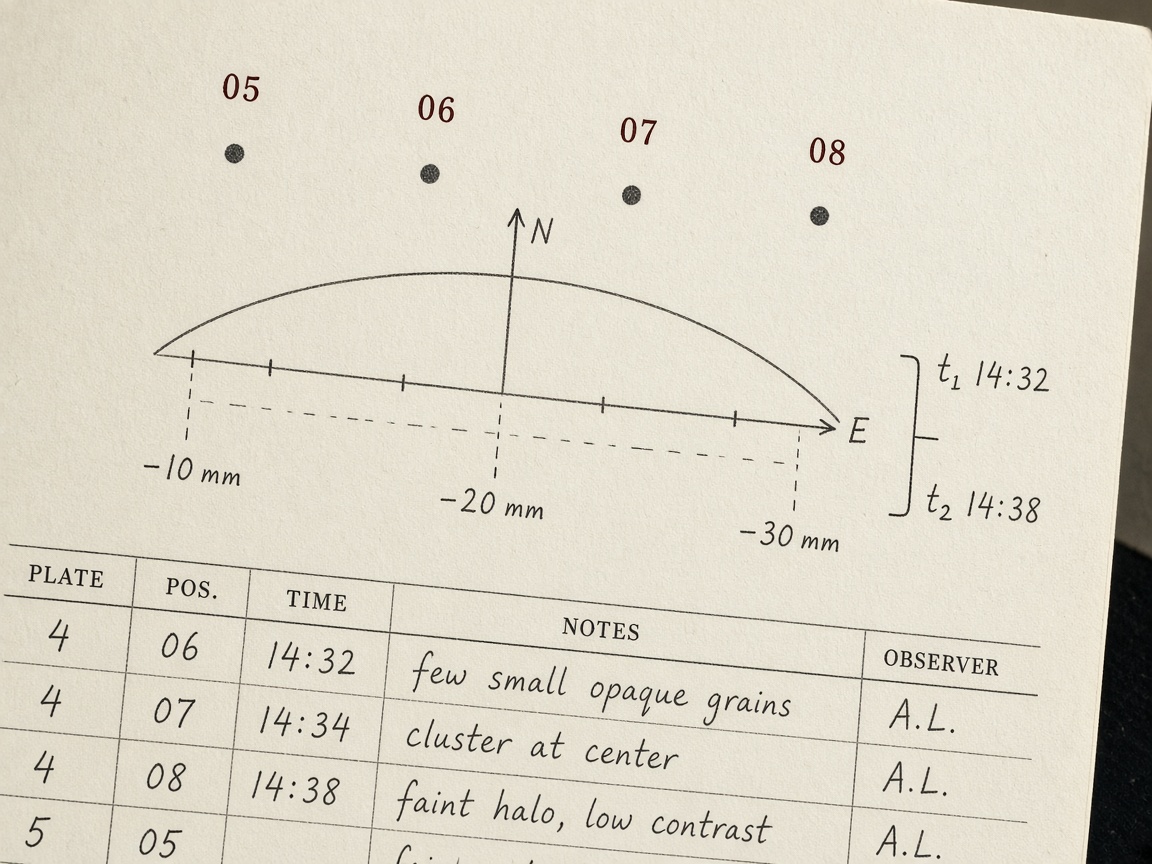 05 06 07 08
N
E
t₁ 14:32
t₂ 14:38
−10 mm −20 mm −30 mm
PLATE POS. TIME NOTES OBSERVER
4 06 14:32 few small opaque grains A.L.
4 07 14:34 cluster at center A.L.
4 08 14:38 faint halo, low contrast A.L.
5 05